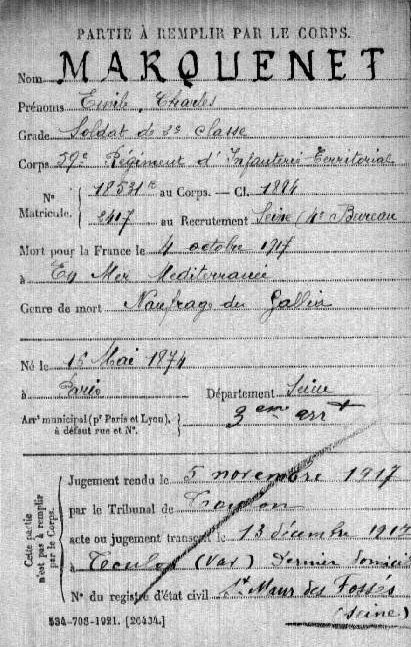 PARTIE À REMPLIR PAR LE CORPS.
Nom MARQUENET
Prénoms Emile, Charles
Grade Soldat de 2e classe
Corps 59e Régiment d'Infanterie Territorial
N° Matricule. 12521 au Corps. — Cl. 1894
2417 au Recrutement Seine (4e Bureau
Mort pour la France le 4 octobre 1917
à En Mer Méditerranée
Genre de mort Naufrage du Gallia
Né le 15 Mai 1874
à Paris Département Seine
Arrt municipal (pr Paris et Lyon), à défaut rue et N°. 3eme arrt
Cette partie n'est pas à remplir par le Corps.
Jugement rendu le 5 novembre 1917
par le Tribunal de Toulon
acte ou jugement transcrit le 13 décembre 1917
à Toulon (Var) Dernier domicile
N° du registre d'état civil St Maur des Fossés
(Seine)
534-708-1921. [26434.]